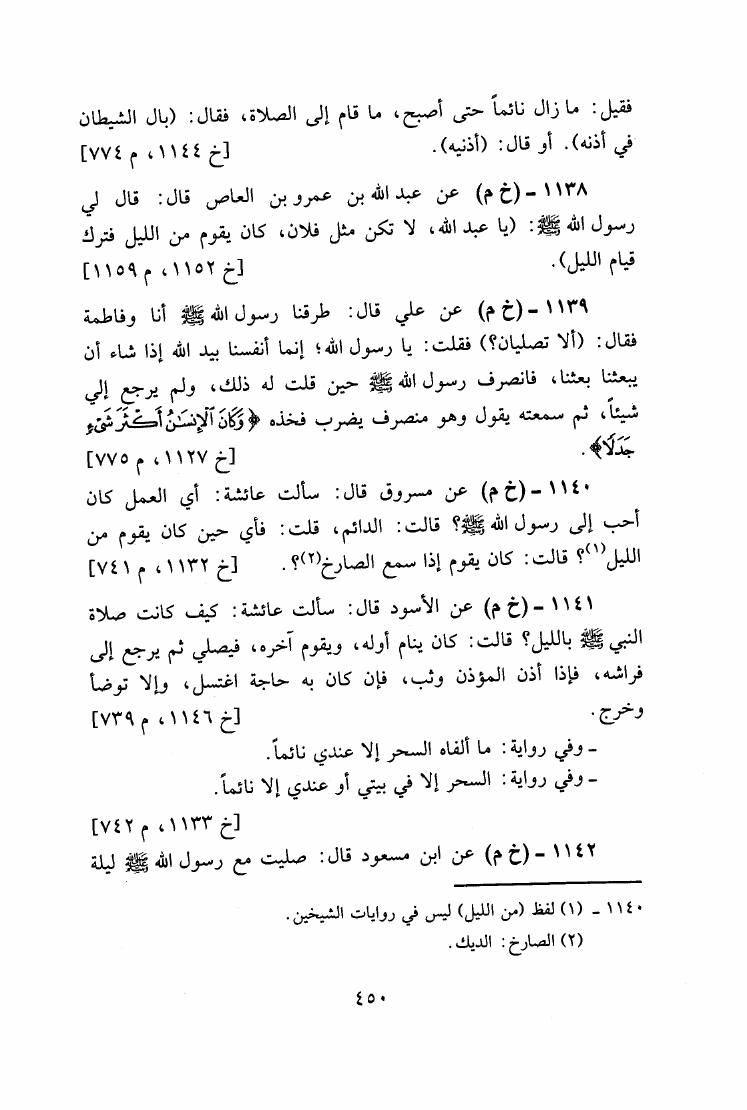 فقيل: ما زال نائماً حتى أصبح، ما قام إلى الصلاة، فقال: (بال الشيطان
في أذنه). أو قال: (أذنيه). [خ ١١٤٤، م ٧٧٤]
١١٣٨ - (خ م) عن عبد الله بن عمرو بن العاص قال: قال لي
رسول الله ﷺ: (يا عبد الله، لا تكن مثل فلان، كان يقوم من الليل فترك
قيام الليل). [خ ١١٥٢، م ١١٥٩]
١١٣٩ - (خ م) عن علي قال: طرقنا رسول الله ﷺ أنا وفاطمة
فقال: (ألا تصليان؟) فقلت: يا رسول الله؛ إنما أنفسنا بيد الله إذا شاء أن
يبعثنا بعثنا، فانصرف رسول الله ﷺ حين قلت له ذلك، ولم يرجع إلي
شيئاً، ثم سمعته يقول وهو منصرف يضرب فخذه ﴿وَكَانَ ٱلْإِنسَٰنُ أَكْثَرَ شَىْءٍ
جَدَلًا﴾. [خ ١١٢٧، م ٧٧٥]
١١٤٠ - (خ م) عن مسروق قال: سألت عائشة: أي العمل كان
أحب إلى رسول الله ﷺ؟ قالت: الدائم، قلت: فأي حين كان يقوم من
الليل(١)؟ قالت: كان يقوم إذا سمع الصارخ(٢)؟. [خ ١١٣٢، م ٧٤١]
١١٤١ - (خ م) عن الأسود قال: سألت عائشة: كيف كانت صلاة
النبي ﷺ بالليل؟ قالت: كان ينام أوله، ويقوم آخره، فيصلي ثم يرجع إلى
فراشه، فإذا أذن المؤذن وثب، فإن كان به حاجة اغتسل، وإلا توضأ
وخرج. [خ ١١٤٦، م ٧٣٩]
- وفي رواية: ما ألفاه السحر إلا عندي نائماً.
- وفي رواية: السحر إلا في بيتي أو عندي إلا نائماً.
[خ ١١٣٣، م ٧٤٢]
١١٤٢ - (خ م) عن ابن مسعود قال: صليت مع رسول الله ﷺ ليلة
١١٤٠ - (١) لفظ (من الليل) ليس في روايات الشيخين.
(٢) الصارخ: الديك.
٤٥٠